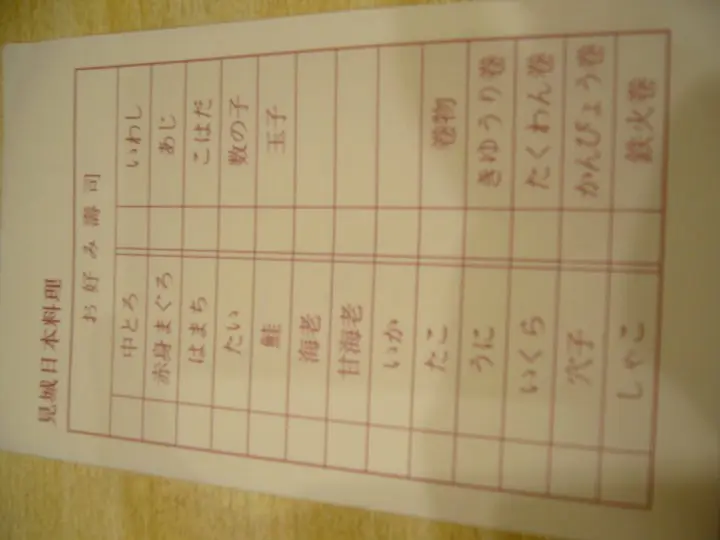 見城日本料理
お好み壽司
中とろ いわし
赤身まぐろ あじ
はまち こはだ
たい 数の子
鮭 玉子
海老
甘海老
いか
たこ 巻物
うに きゆうり巻
いくら たくわん巻
穴子 かんぴょう巻
しゃこ 鉄火巻